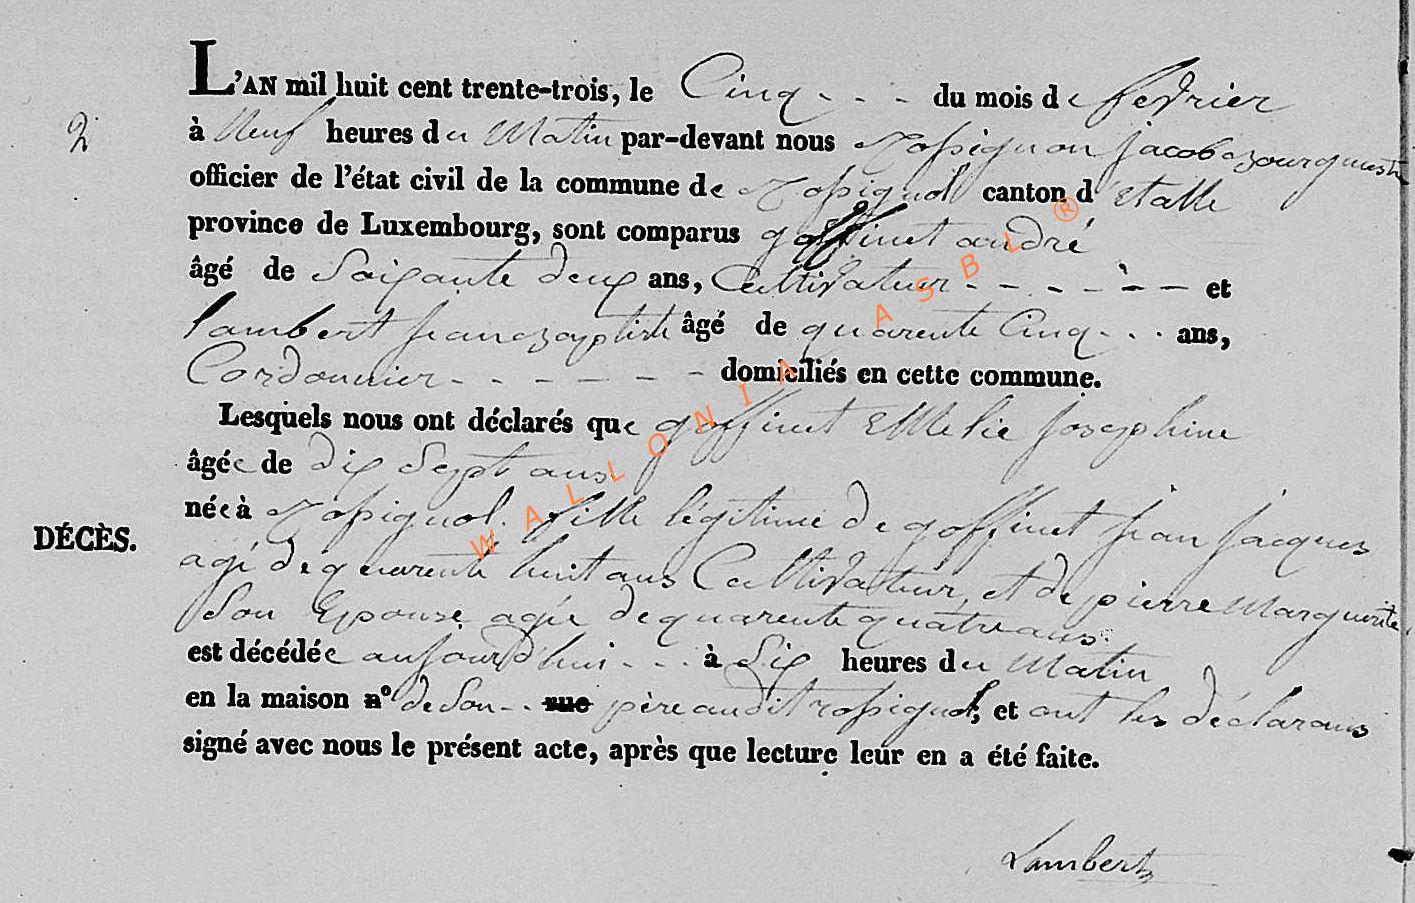 L'AN mil huit cent trente-trois, le Cinq - - - du mois de fevrier
2 à Neuf heures du Matin par-devant nous Rossignon jacob Bourguesti
officier de l'état civil de la commune de Rossignol canton d'Etalle
province de Luxembourg, sont comparus goffinet andré
âgé de Soixante deux ans, Cultivateur - - - - - - et
Lambert jean Baptiste âgé de quarente Cinq - - - ans,
Cordonnier - - - - - - - domiciliés en cette commune.
Lesquels nous ont déclarés que goffinet Ellelie josephine
âgée de dix Sept ans
née à Rossignol. fille légitime de goffinet jean jacques
DÉCÈS.
agé de quarente huit ans Cultivateur, et de pierre Marguerite
Son Epouse agée de quarente quatre ans
est décédée aujourd'hui - - - à Six heures du Matin
en la maison n° de Son - - rue père audit rossignol, et ont les déclarans
signé avec nous le présent acte, après que lecture leur en a été faite.
Lambert
WALLONIA ASBL ®